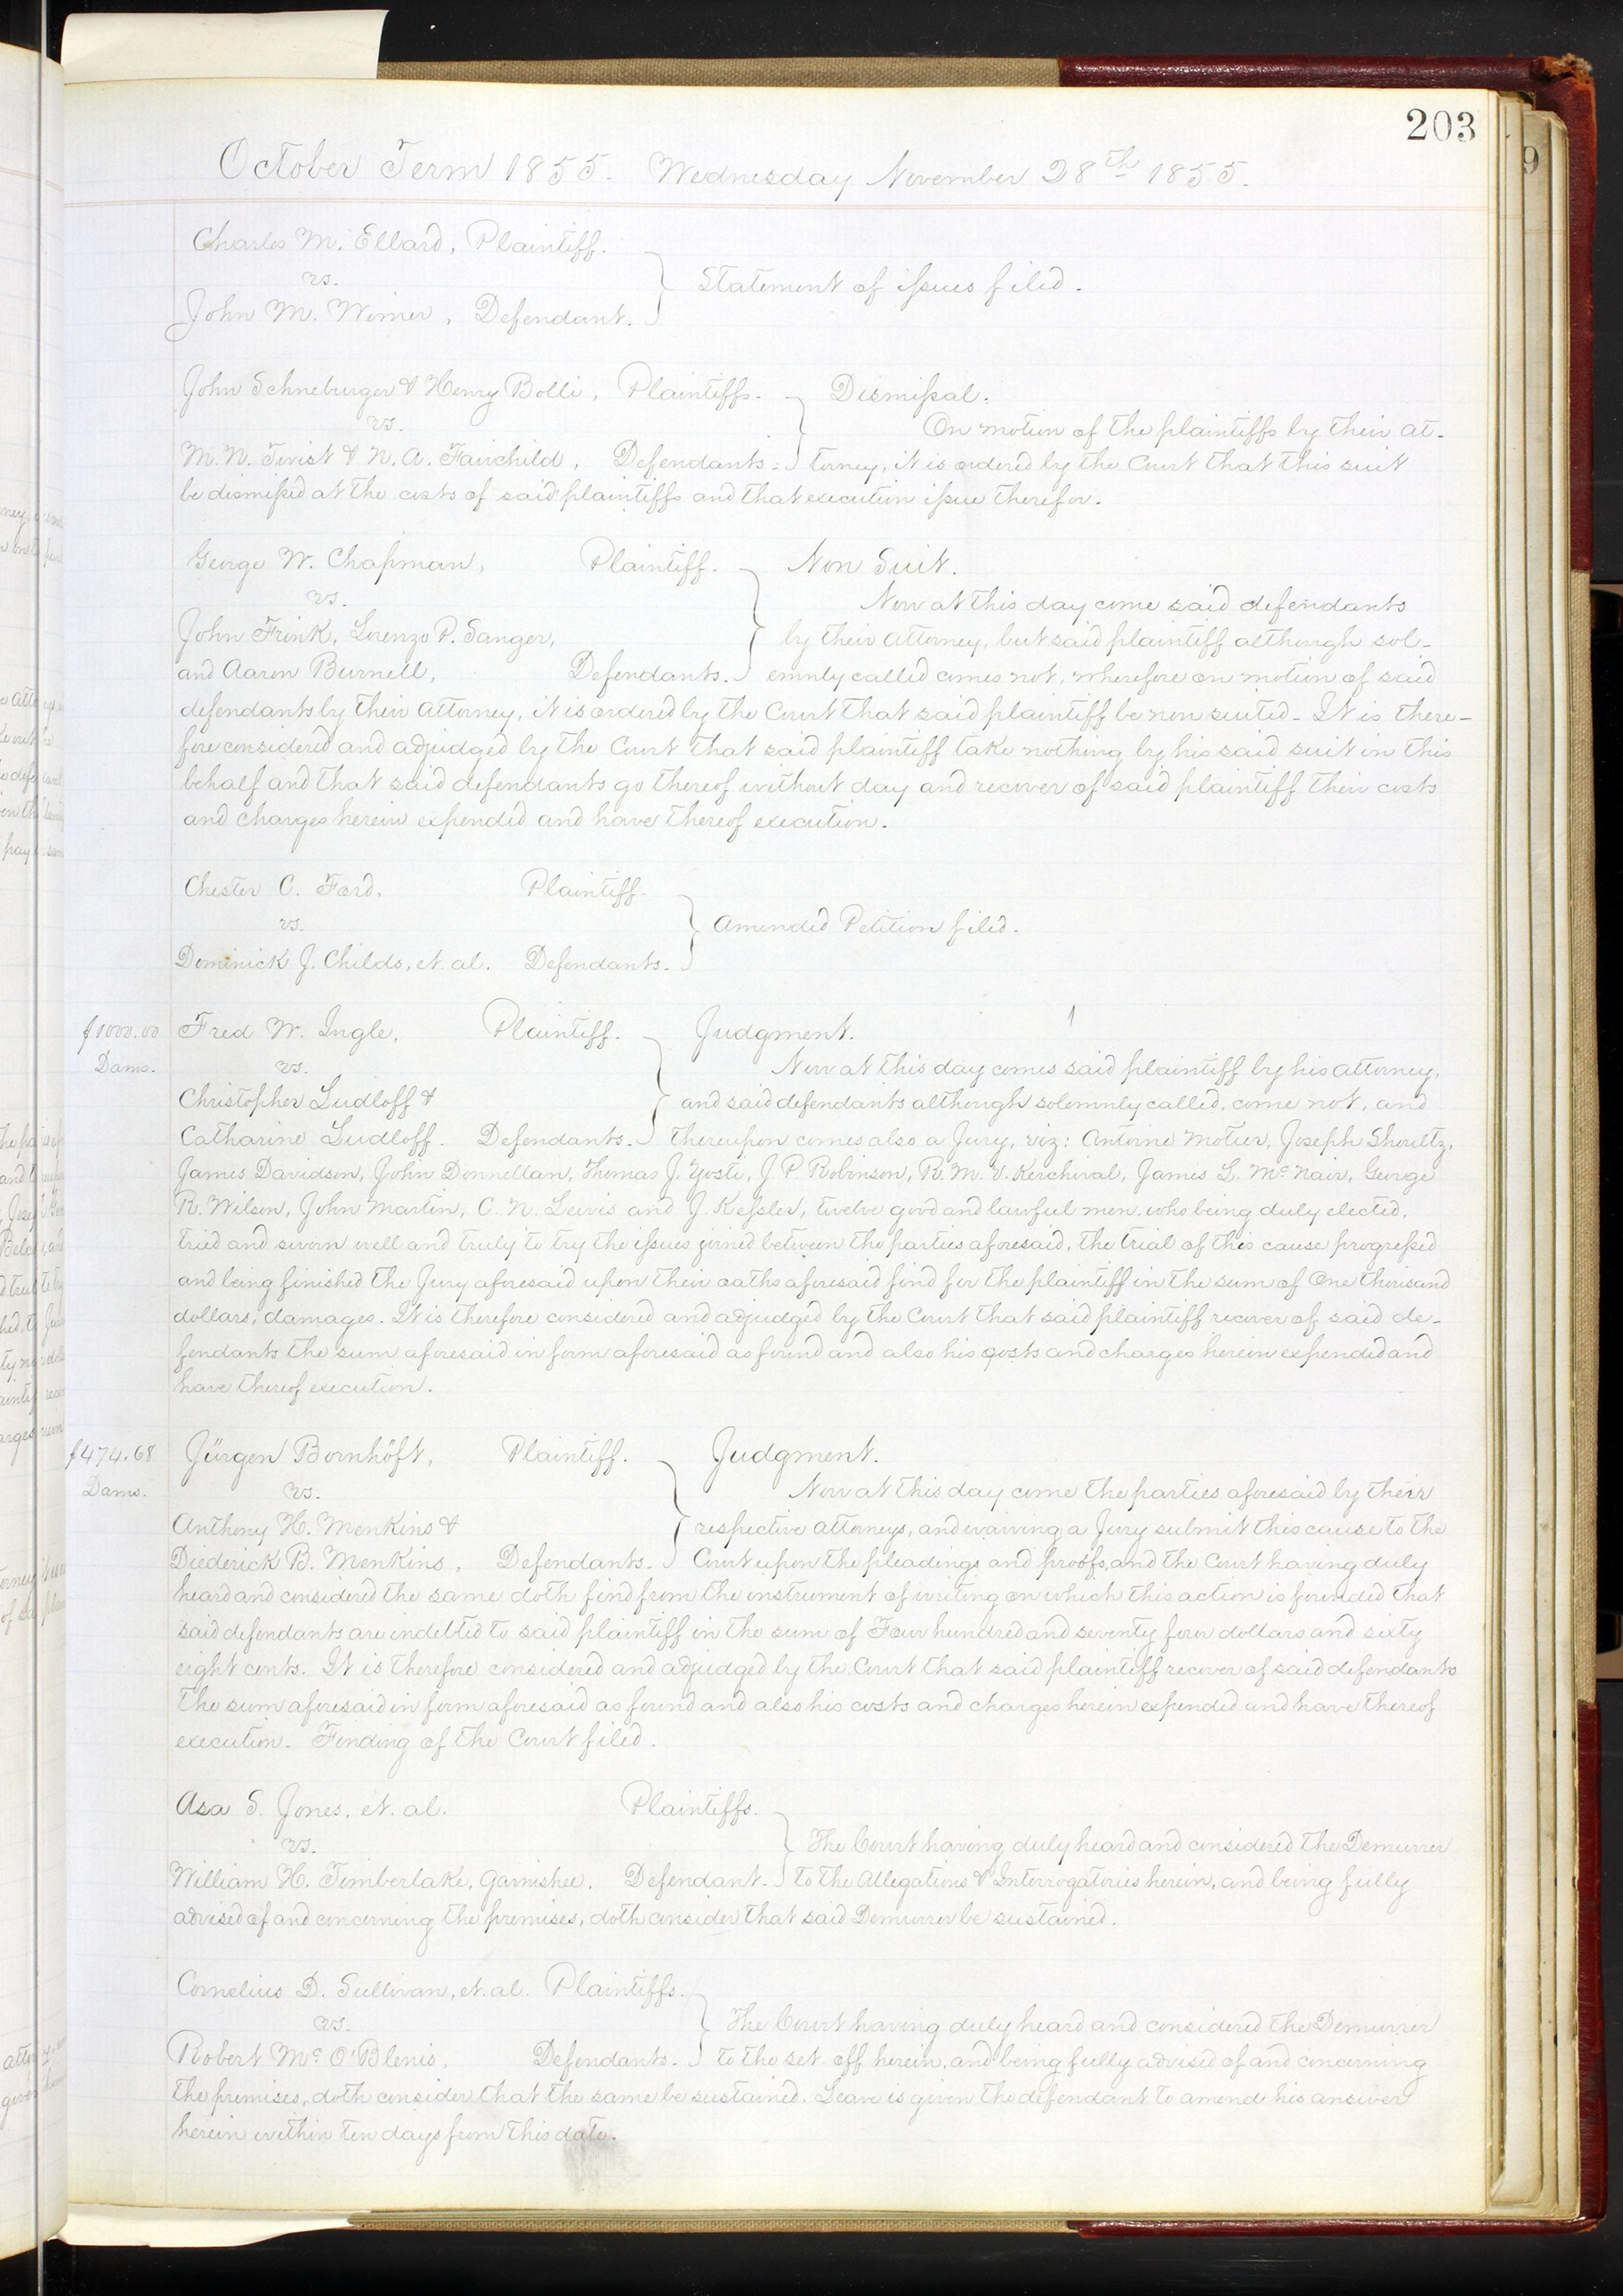 203
October Term 1855. Wednesday November 28th 1855.
Charles M. Ellard, Plaintiff.
vs.
Statement of issues filed.
John M. Wimer, Defendant.
John Schneburger & Henry Bolli, Plaintiffs. Dismissal.
On motion of the plaintiffs by their at-
vs.
M. N. Tivist & N. A. Fairchild, Defendants. torney, it is ordered by the Court that this suit
be dismissed at the costs of said plaintiffs and that execution issue therefor.
George W. Chapman, Plaintiff. Non Suit.
vs. Now at this day come said defendants
John Frink, Lorenzo P. Sanger, by their attorney, but said plaintiff although sol-
and Aaron Burnell, Defendants. emnly called comes not, wherefore on motion of said
defendants by their attorney, it is ordered by the Court that said plaintiff be non suited. It is there-
fore considered and adjudged by the Court that said plaintiff take nothing by his said suit in this
behalf and that said defendants go thereof without day and recover of said plaintiff their costs
and charges herein expended and have thereof execution.
Chester C. Ford, Plaintiff.
vs. Amended Petition filed.
Dominick J. Childs, et. al. Defendants.
$1000.00 Fred W. Ingle, Plaintiff. Judgment.
Dams. vs. Now at this day comes said plaintiff by his attorney,
Christopher Ludloff & and said defendants although solemnly called, come not, and
Catharine Ludloff. Defendants. thereupon comes also a Jury, viz: Antoine Motier, Joseph Shoultz,
James Davidson, John Donnellan, Thomas J. Yosti, J. P. Robinson, R. M. V. Kerchival, James L. McNair, George
R. Wilson, John Martin, C. N. Lewis and J. Kessler, twelve good and lawful men, who being duly elected,
tried and sworn well and truly to try the issues joined between the parties aforesaid, the trial of this cause progressed
and being finished the Jury aforesaid upon their oaths aforesaid find for the plaintiff in the sum of One thousand
dollars, damages. It is therefore considered and adjudged by the Court that said plaintiff recover of said de-
fendants the sum aforesaid in form aforesaid as found and also his costs and charges herein expended and
have thereof execution.
$474.68 Jürgen Bornhöft, Plaintiff. Judgment.
Dams. vs. Now at this day come the parties aforesaid by their
Anthony H. Menkins & respective attorneys, and waiving a Jury submit this cause to the
Diederick B. Menkins, Defendants. Court upon the pleadings and proofs, and the Court having duly
heard and considered the same doth find from the instrument of writing on which this action is founded that
said defendants are indebted to said plaintiff in the sum of Four hundred and seventy four dollars and sixty
eight cents. It is therefore considered and adjudged by the Court that said plaintiff recover of said defendants
the sum aforesaid in form aforesaid as found and also his costs and charges herein expended and have thereof
execution. Finding of the Court filed.
Asa S. Jones, et. al. Plaintiffs.
vs. The Court having duly heard and considered the Demurrer
William H. Timberlake, Garnishee. Defendant. to the Allegations & Interrogatories herein, and being fully
advised of and concerning the premises, doth consider that said Demurrer be sustained.
Cornelius D. Sullivan, et. al. Plaintiffs.
vs. The Court having duly heard and considered the Demurrer
Robert Mc O'Blenis, Defendants. to the set off herein, and being fully advised of and concerning
the premises, doth consider that the same be sustained. Leave is given the defendant to amend his answer
herein within ten days from this date.